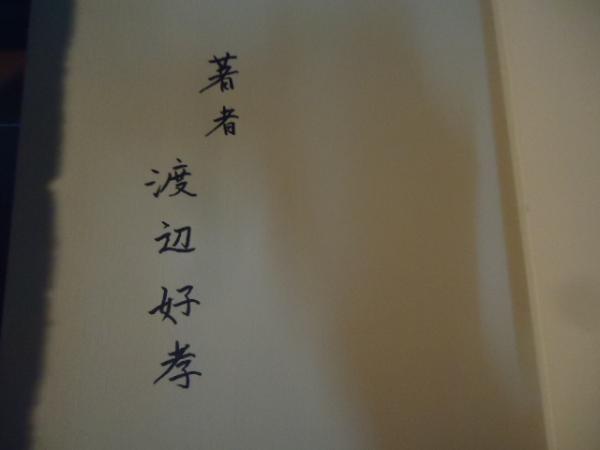 著者
渡辺好孝